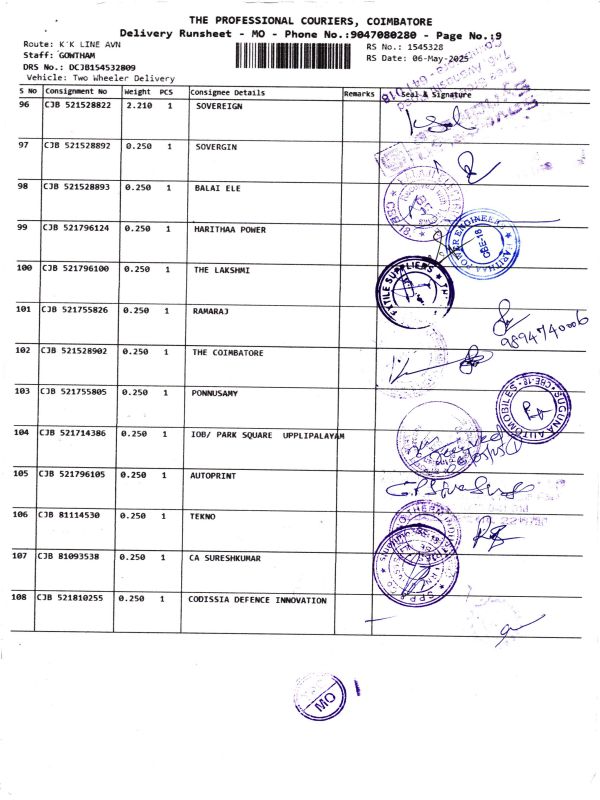 THE PROFESSIONAL COURIERS, COIMBATORE
Delivery Runsheet - MO - Phone No.:9047080280 - Page No.:9
Route: K K LINE AVN
RS No.: 1545328
Staff: GOWTHAM
RS Date: 06-May-2025
DRS No.: DCJB154532809
Vehicle: Two Wheeler Delivery
S No Consignment No Weight PCS Consignee Details Remarks Seal & Signature
96 CJB 521528822 2.210 1 SOVEREIGN
97 CJB 521528892 0.250 1 SOVERGIN
98 CJB 521528893 0.250 1 BALAI ELE
CBE-18
99 CJB 521796124 0.250 1 HARITHAA POWER
HARITHAA POWER ENGINEERS
CBE-18
100 CJB 521796100 0.250 1 THE LAKSHMI
101 CJB 521755826 0.250 1 RAMARAJ
9894740006
102 CJB 521528902 0.250 1 THE COIMBATORE
103 CJB 521755805 0.250 1 PONNUSAMY
SUGUNA AUTOMOBILES CBE-18
104 CJB 521714386 0.250 1 IOB/ PARK SQUARE UPPLIPALAYAM
105 CJB 521796105 0.250 1 AUTOPRINT
106 CJB 81114530 0.250 1 TEKNO
107 CJB 81093538 0.250 1 CA SURESHKUMAR
108 CJB 521810255 0.250 1 CODISSIA DEFENCE INNOVATION
MO